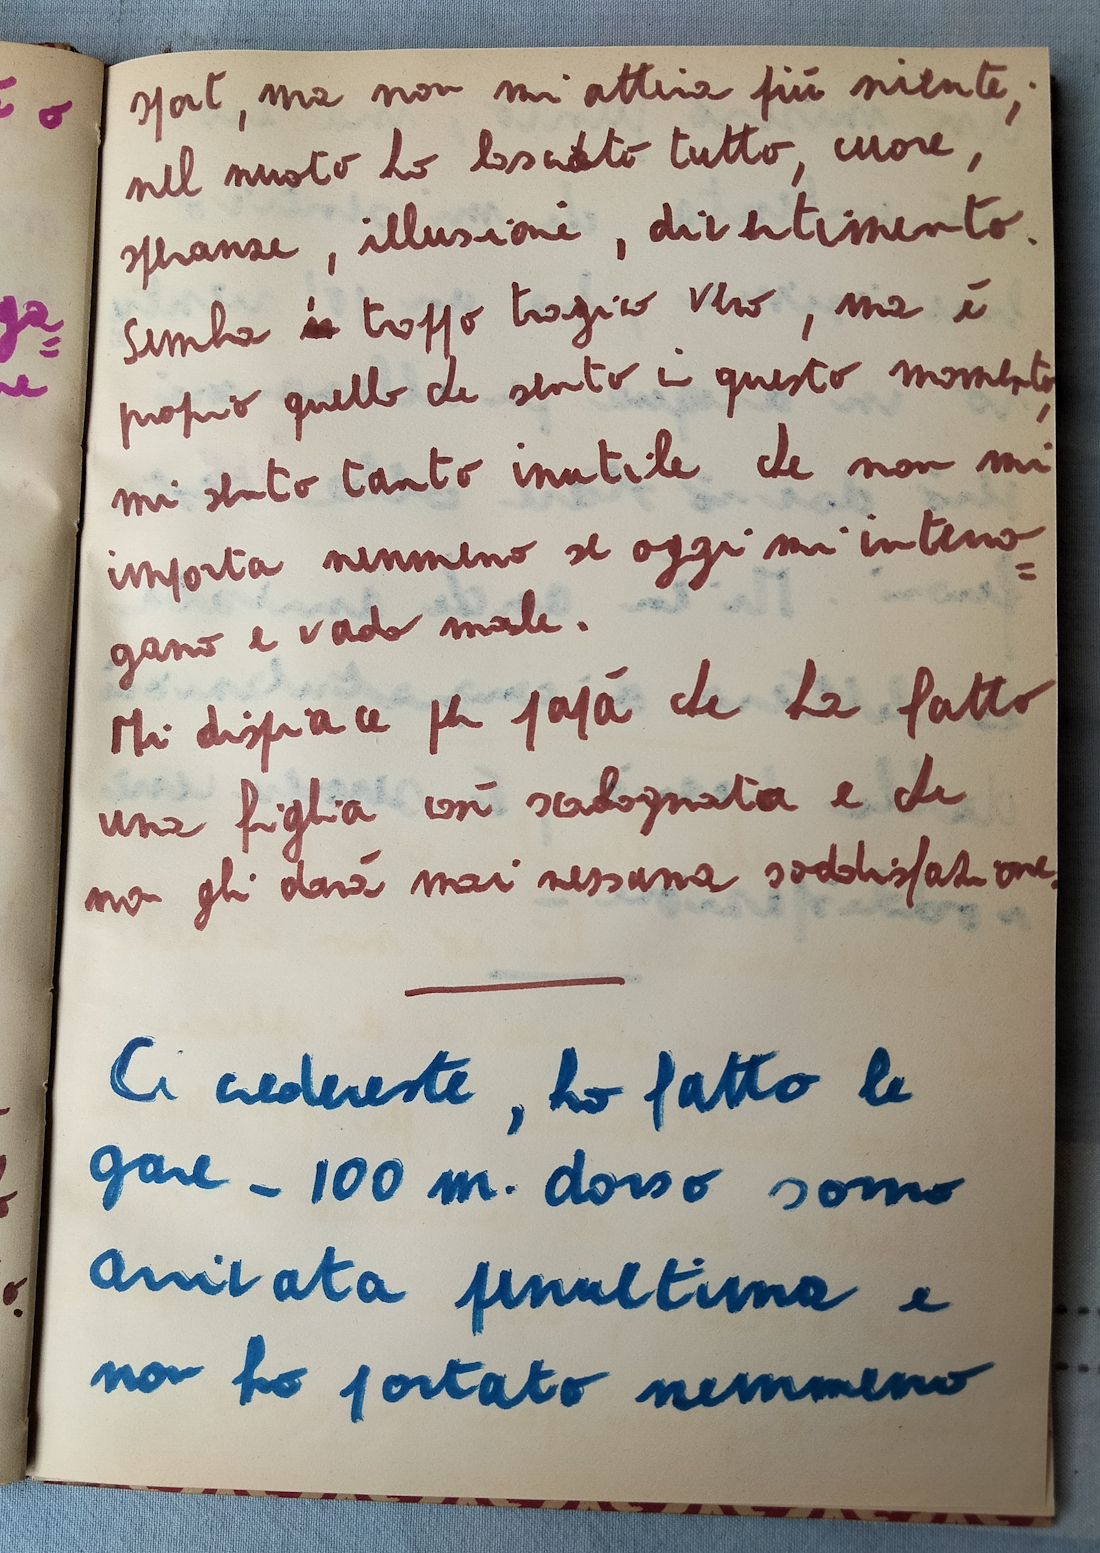 sport, ma non mi attira più niente;
nel nuoto ho lasciato tutto, cuore,
speranze, illusioni, divertimento.
Sembra troppo tragico vero, ma è
proprio quello che sento in questo momento,
mi sento tanto inutile che non mi
importa nemmeno se oggi mi interro=
gano e vado male.
Mi dispiace per papà che ha fatto
una figlia così scalognata e che
non gli darà mai nessuna soddisfazione.
Ci credereste, ho fatto le
gare - 100 m. dorso sono
arrivata penultima e
non ho portato nemmeno